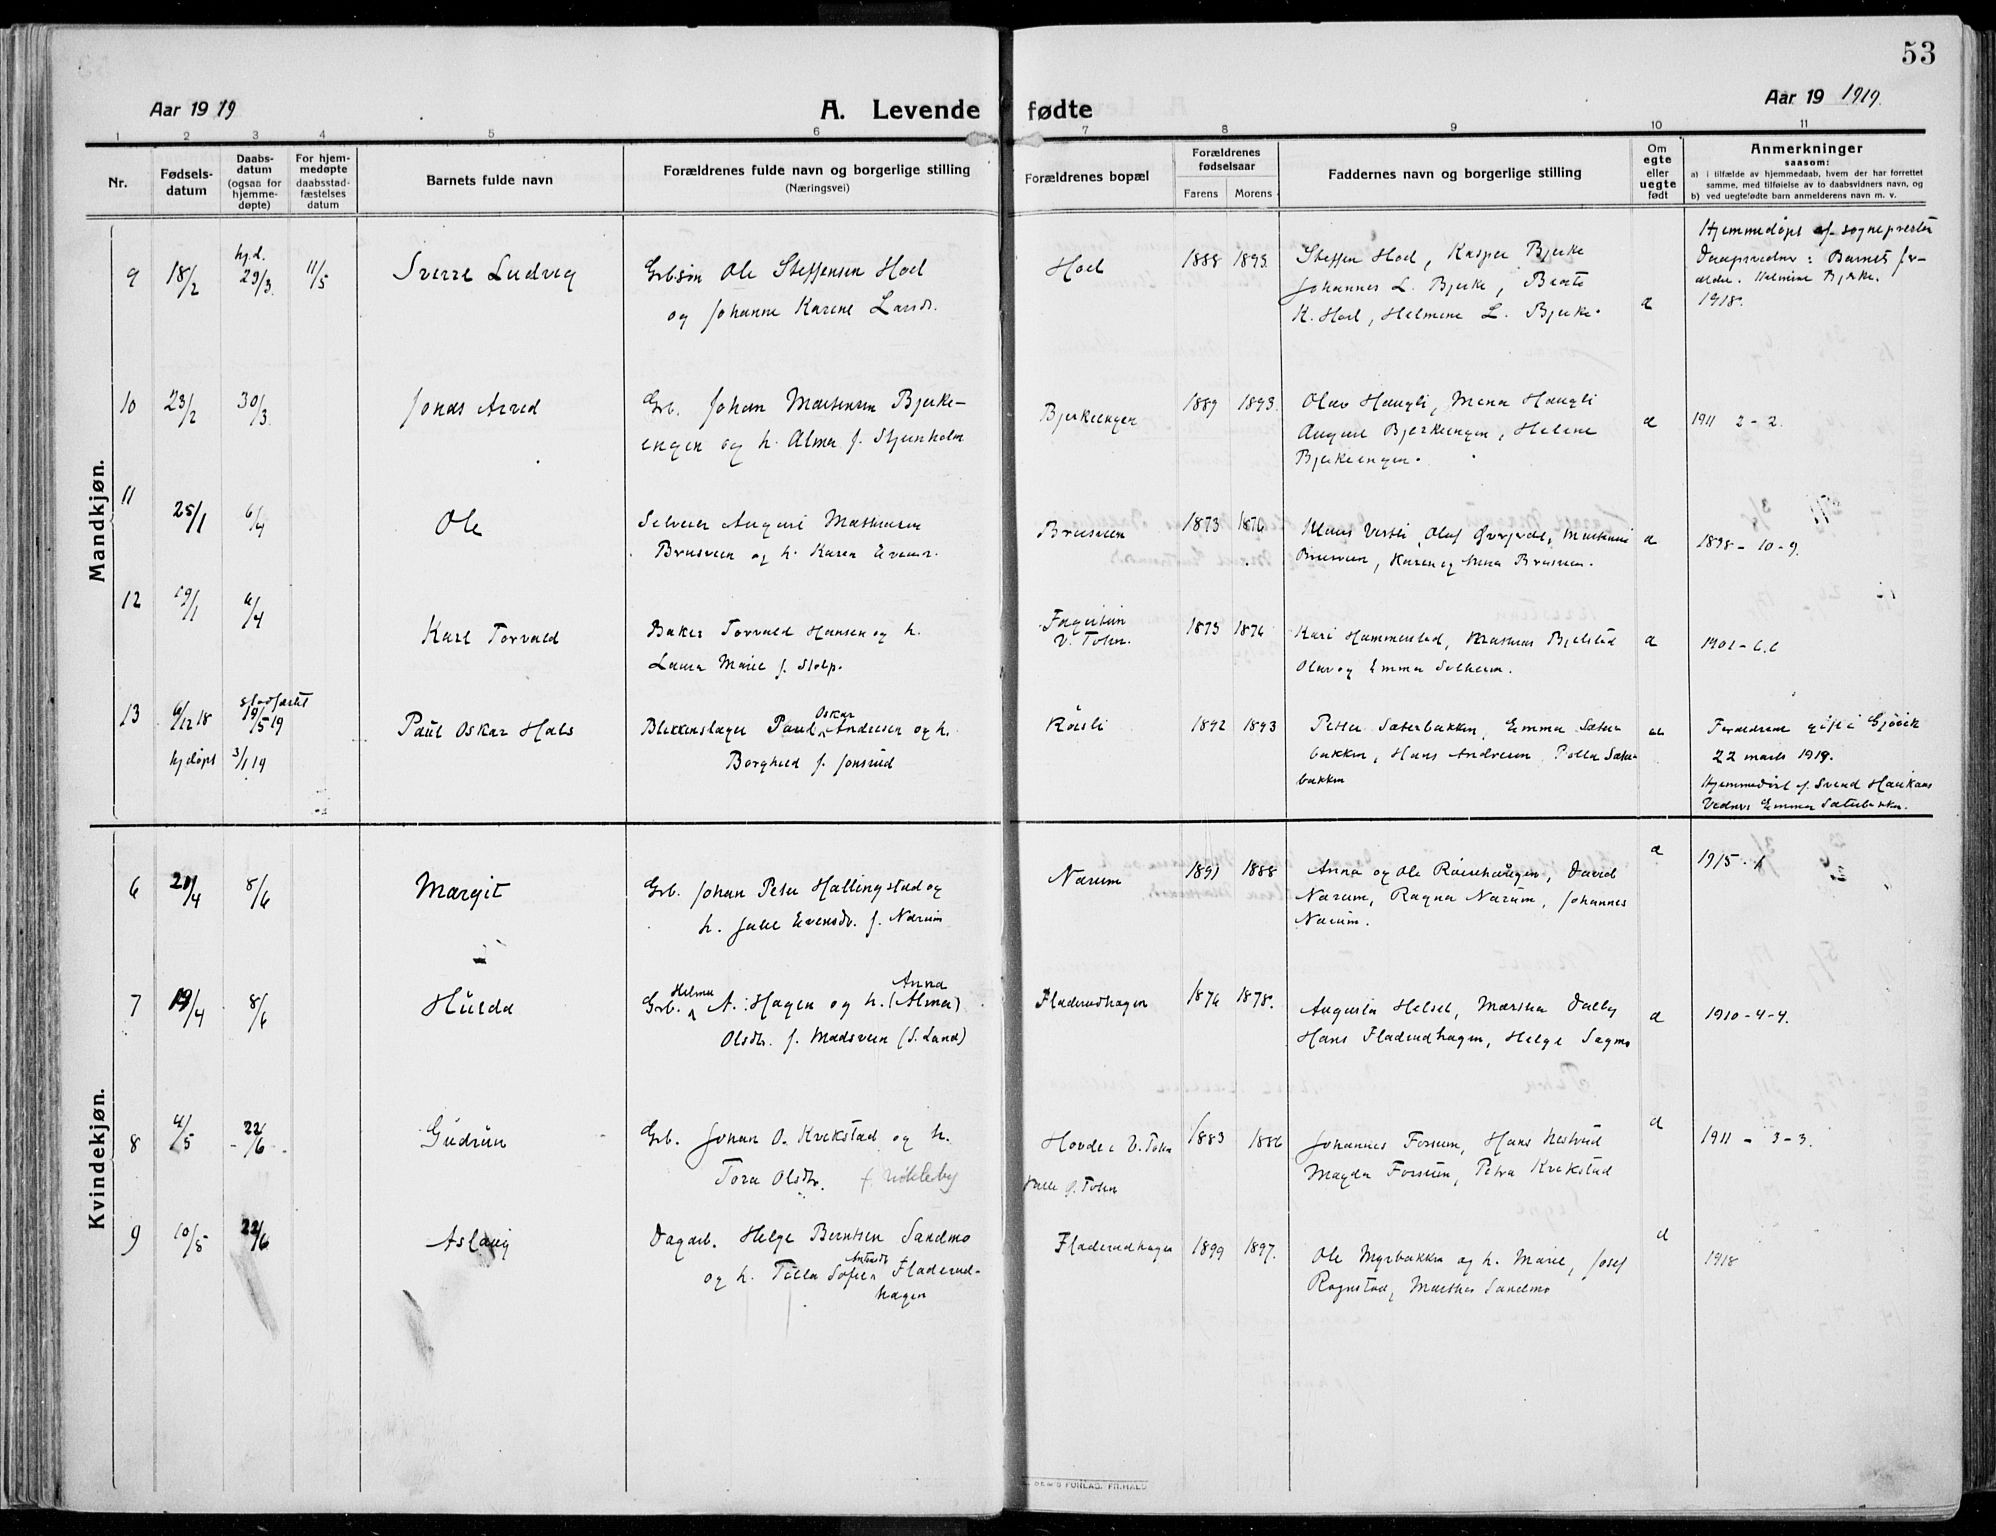 53
Aar 1919
A. Levende fødte
Aar 19 1919.
1 2 3 4 5 6 7 8 9 10 11
Nr.
Fødsels-
datum
Daabs-
datum
(ogsaa for
hjemme-
døpte)
For hjem-
medøpte
daabsstad-
fæstelses
datum
Barnets fulde navn
Forældrenes fulde navn og borgerlige stilling
(Næringsvei)
Forældrenes bopæl
Forældrenes
fødselsaar
Farens Morens
Faddernes navn og borgerlige stilling
Om
egte
eller
uegte
født
Anmerkninger
saasom:
a) i tilfælde av hjemmedaab, hvem der har forrettet
samme, med tilføielse av to daabsvidners navn, og
b) ved uegtefødte barn anmelderens navn m. v.
Mandkjøn.
9 18/2 hj.d. 29/3. 11/5 Sverre Ludvig
Grbs.søn Ole Steffensen Hoel
og Johanne Karene Larsdr.
Hoel 1888 1893.
Steffen Hoel, Kasper Bjerke
Johannes L. Bjerke, Beate
K. Hoel, Helmine L. Bjerke.
Hjemmedøpt af sogneprester
Barnets for-
ældre. Helmine Bjerke.
1918.
10 23/2 30/3. Jonas Arvid
Grb. Johan Martinsen Bjerke-
engen og h. Alma f. Stjernholm
Bjerkeengen 1889 1893.
Olav Haugli, Mena Haugli
August Bjerkeengen, Helene
Bjerkeengen.
1911 2-2.
11 25/1 6/4 Ole
Selveier August Mathisen
Brusveen og h. Karen Evensd.
Brusveen 1873 1876
Olaf
Brusveen, Karen og Anna Brusveen.
1898-10-9.
12 19/1 6/4 Karl Torvald
Baker Torvald Hansen og h.
Laura Marie f. Stolp.
V. Toten. 1875 1876
Kari Hammerstad, Bjelstad
Olav og Emma Solheim.
1901-6.6
13 6/12 18 stadfæstet 19/5 19
hjdøpt 3/1 19
Paul Oskar Hals
Blikkenslager Paul Oskar Andersen og h.
Borghild f. Jonsrud
Røisli 1892 1893
Petter Sæterbakken, Emma Sæter-
bakken, Hans Andersen, Polla Sæter-
bakken
Forældrene gift i Gjøvik
22 mars 1919.
Hjemmedøbt af Svend Haukaas
Vidner: Emma Sæterbakken.
Kvindekjøn.
6 20/4 8/6 Margit
Grb. Johan Peter Hallingstad og
h. Julie Evensdr. f. Narum
Narum 1891 1888
Anna og Ole Røisehaugen, David
Narum, Ragna Narum, Johannes
Narum.
1915.
7 19/4 8/6 Hulda
Grb. Helmer A. Hagen og h. Anna (Alma)
Olsdtr. f. Madsveen (S. Land)
Fladerudhagen 1876 1878.
Augusta Helset, Martha Dalby
Hans Fladerudhagen, Helge Sagmo
1910-4-4.
8 4/5 22/6 Gudrun
Grb. Johan O. Kvikstad og h.
Tora Olsdtr. f. Nøkleby
Hovde i V. Toten
1883 1886
Johannes Forsum, Hans
Magda Forsum, Petra Kvikstad
1911-3-3.
9 10/5 22/6 Aslaug
Dagarb. Helge Berntsen Sandmo
og h. Tilla Sofie Antonsdr. Fladerud-
hagen
Fladerudhagen 1899 1897.
Ole Myrbakken og h. Marie, Josef
Rognstad, Marthes Sandmo
1918
FORLAG. FR. HALD